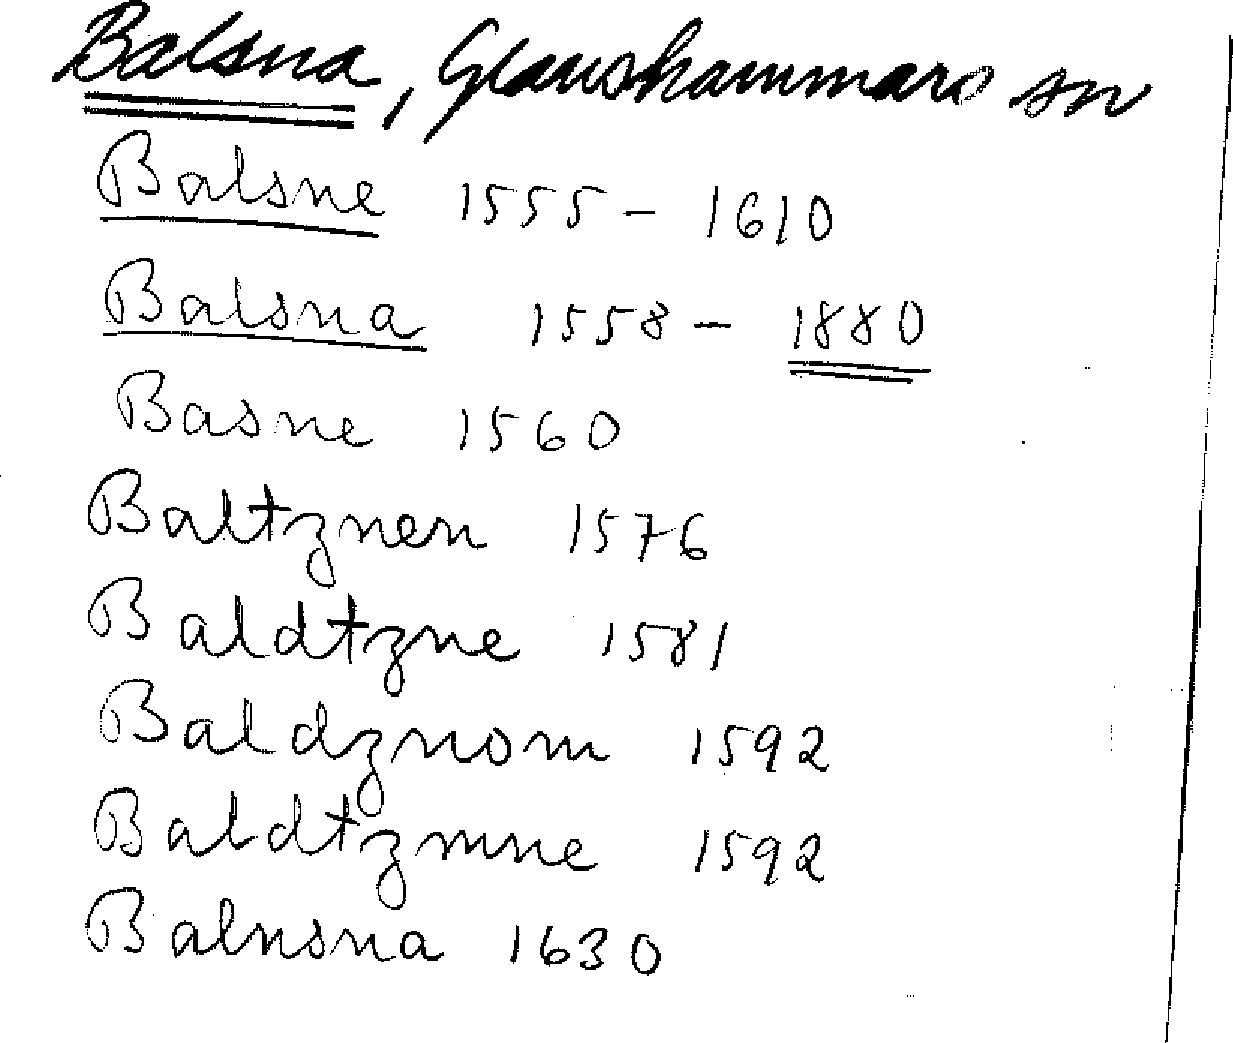 Balsna, Glanshammars sn
Balsne 1555 – 1610
Balsna 1558 – 1880
Basne 1560
Baltznen 1576
Baldtzne 1581
Baldznom 1592
Baldtzmne 1592
Balnsna 1630